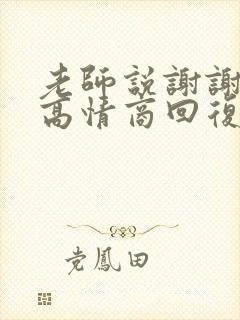 老師説謝謝
高情商回復
党鳳田